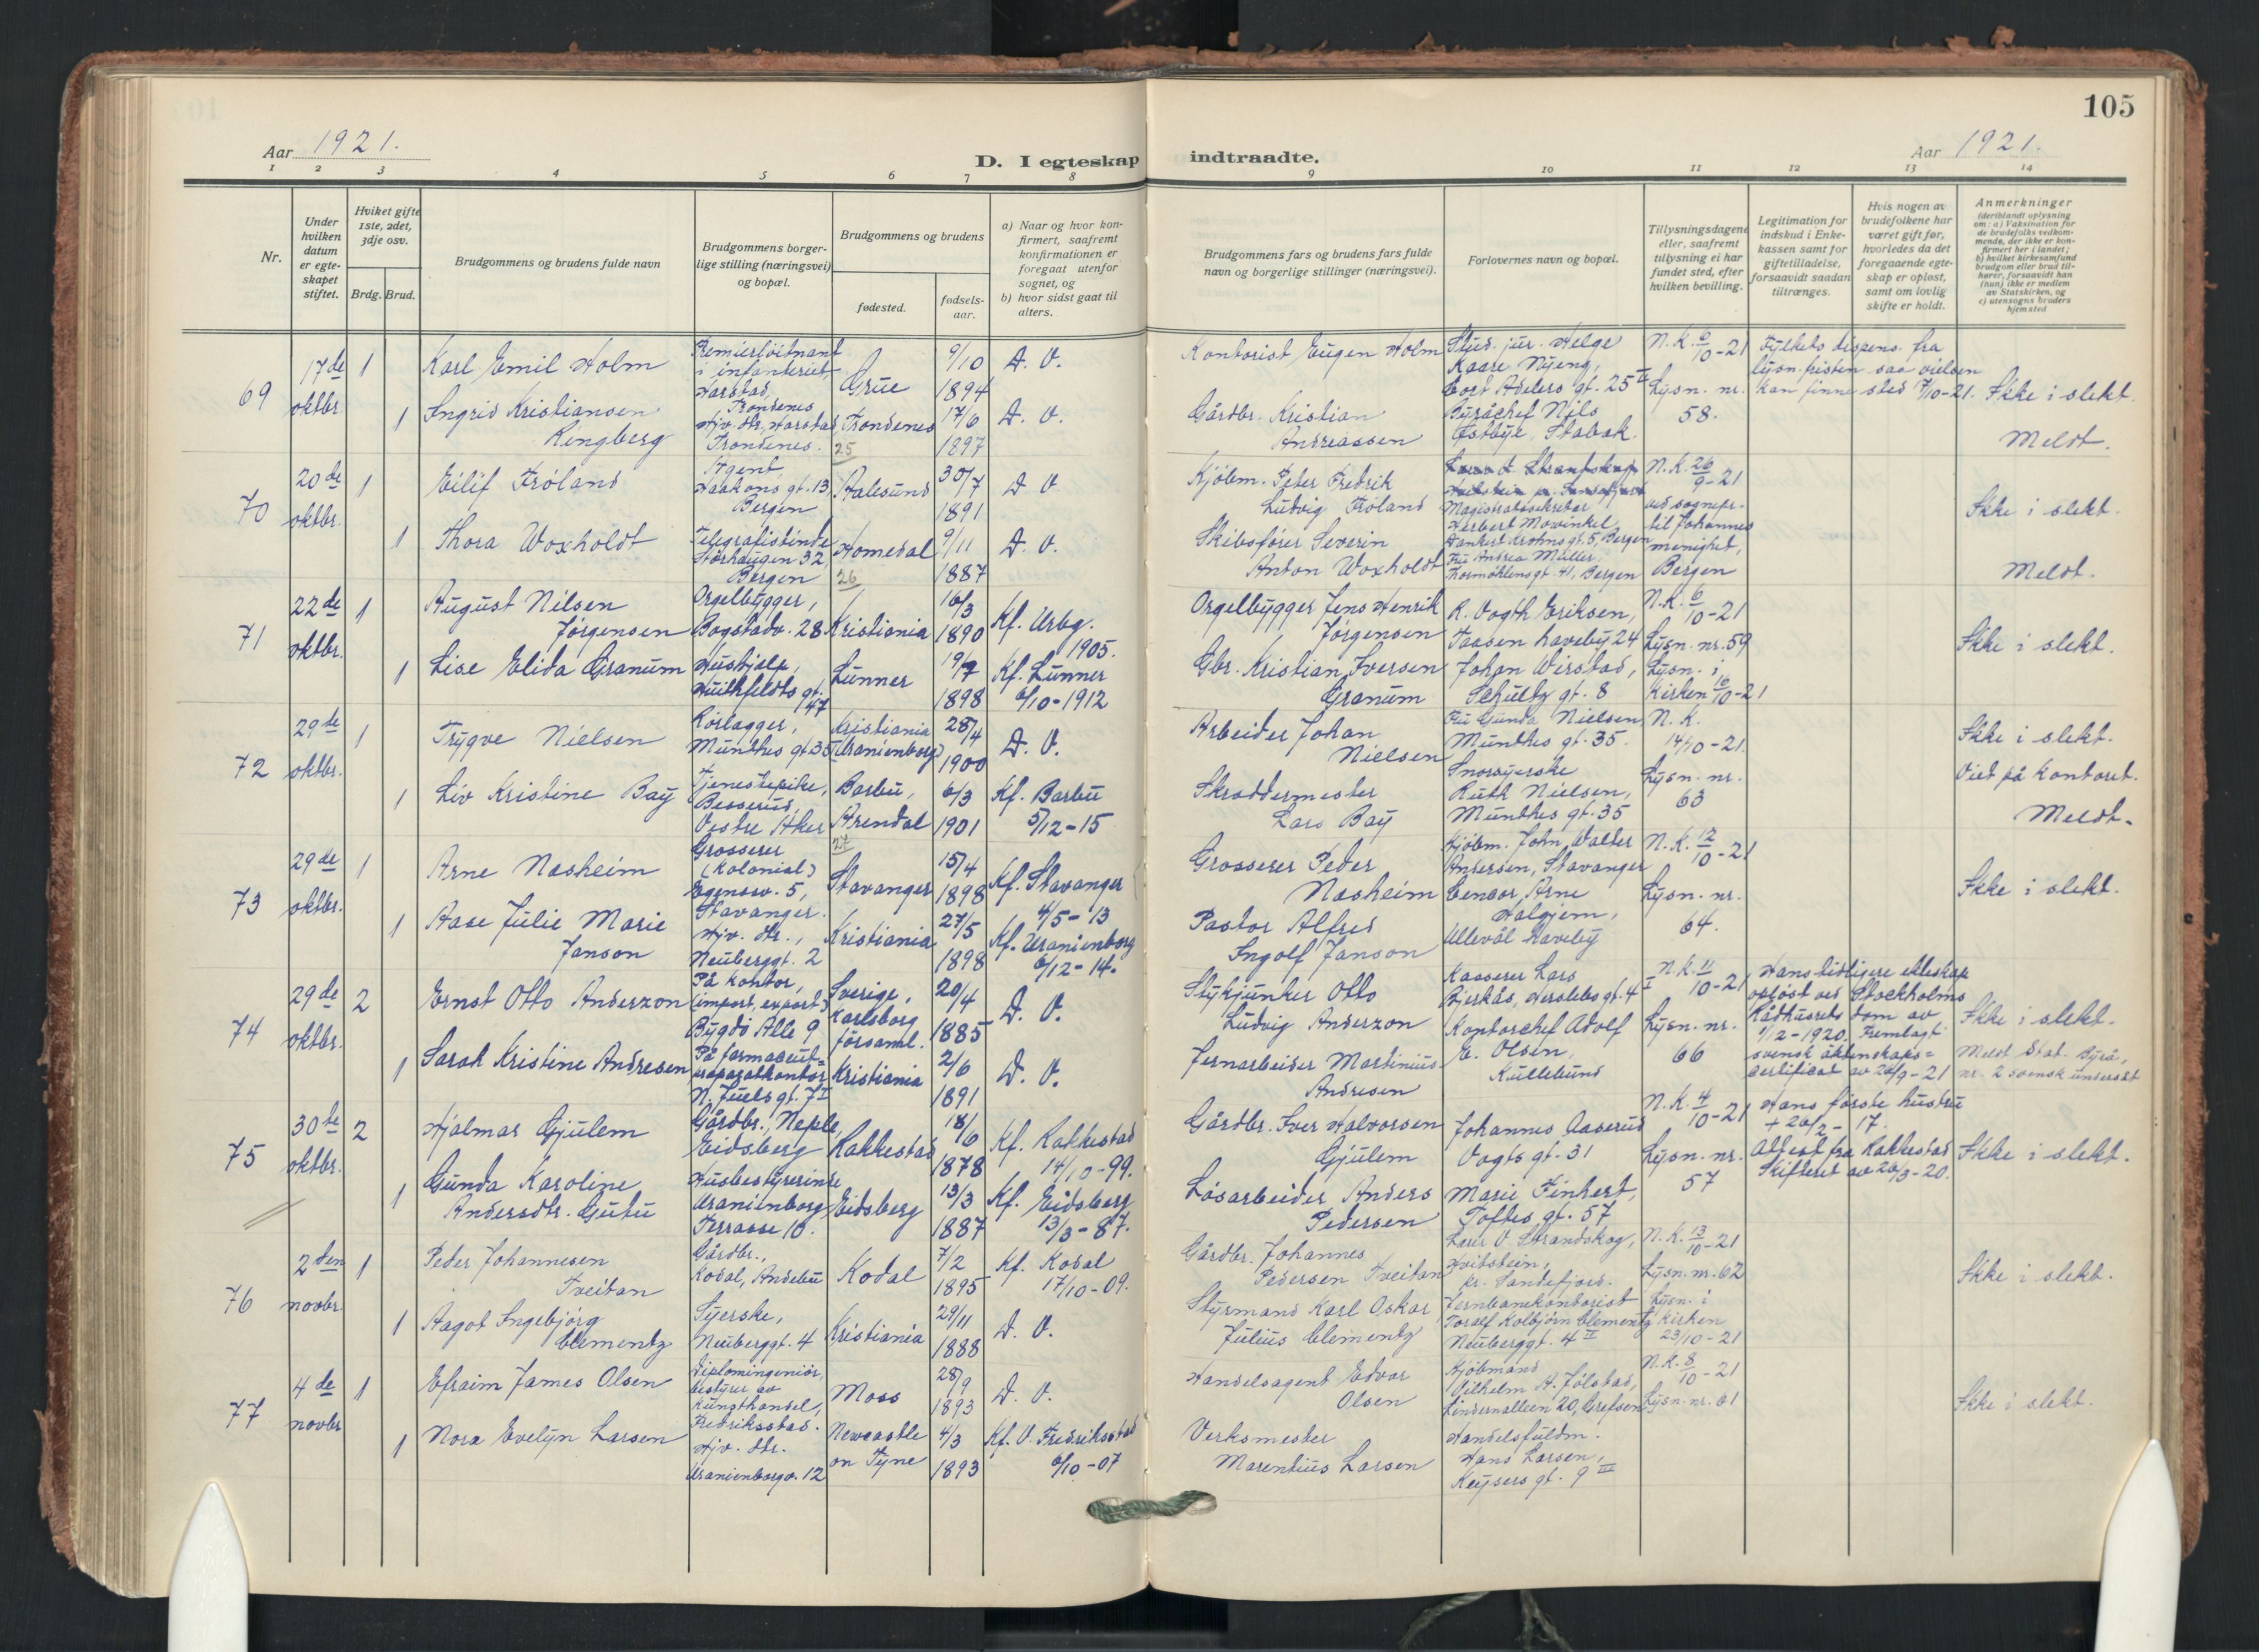 105
Aar 1921.
D. I egteskap indtraadte.
Aar 1921.
1 2 3 4 5 6 7 8 9 10 11 12 13 14
Nr.
Under hvilken datum er egte-skapet stiftet.
Hviket gifte 1ste, 2det, 3dje osv.
Brdg. Brud.
Brudgommens og brudens fulde navn
Brudgommens borger-
lige stilling (næringsvei)
og bopæl.
Brudgommens og brudens
fødested.
fødsels-
aar.
a) Naar og hvor kon-
firmert, saafremt
konfirmationen er
foregaat utenfor
sognet, og
b) hvor sidst gaat til
alters.
Brudgommens fars og brudens fars fulde
navn og borgerlige stillinger (næringsvei).
Forlovernes navn og bopæl.
Tillysningsdagene
eller, saafremt
tillysning ei har
fundet sted, efter
hvilken bevilling.
Legitimation for
indskud i Enke-
kassen samt for
giftetilladelse,
forsaavidt saadan
tiltrænges.
Hvis nogen av
brudefolkene har
været gift før,
hvorledes da det
foregaaende egte-
skap er opløst,
samt om lovlig
skifte er holdt.
Anmerkninger
(deriblandt oplysning
om: a) Vaksination for
de brudefolks vedkom-
mende, der ikke er kon-
firmert her i landet;
b) hvilket kirkesamfund
brudgom eller brud til-
hører, forsaavidt han
(hun) ikke er medlem
av Statskirken, og
c) utensogns bruders
hjemsted
69
17de
oktbr.
1
Karl Emil Holm
Premierløitnant
i infanteriet,
Harstad,
Trondenes
Grue
9/10
1894
D. V.
Kontorist Eugen Holm
Stud. jur. Helge
Kaare Nyeng,
Cort Adelers gt. 25 IV
N.K. 6/10-21
Lysn. nr.
58.
Fylkets dispens. fra
lysn. fristen saa vielsen
kan finne sted 7/10-21.
Ikke i slekt.
1
Ingrid Kristiansen
Ringberg
Hjv. dtr., Harstad
Trondenes.
Trondenes
25
17/6
1897
D. V.
Gårdbr. Kristian
Andreassen
Byråchef Nils
Østbye, Stabæk.
Meldt.
70
20de
oktbr.
1
Eilif Fróland
Agent,
Haakons gt. 13,
Bergen
Aalesund
30/7
1891
D. V.
Kjöbm. Peter Fredrik
Ludvig Fróland
Magistratssekretær
Herbert Mowinkel,
Dankert Krohns gt. 5, Bergen
N.K. 26/9-21
ved sognepr.
til Johannes
menighet,
Bergen
Ikke i slekt.
1
Thora Woxholdt
Telegrafistinde
Störhaugen 32,
Bergen
Homedal
26
9/11
1887
D. V.
Skibsfører Severin
Anton Woxholdt
Fru Andrea Müller,
Thormöhlensgt. 41, Bergen
Meldt.
71
22de
oktbr.
1
August Nilsen
Jørgensen
Orgelbygger,
Bogstadv. 28
Kristiania
16/3
1890
Kf. Urbg.
1905.
Orgelbygger Jens Henrik
Jørgensen
R. Vogth Eriksen,
Taasen haveby 24
N.K. 6/10-21
Lysn. nr. 59
Ikke i slekt.
1
Lise Elida Granum
Hushjelp,
Huitfeldts gt.
47
Lunner
19/7
1898
Kf. Lunner
6/10-1912
Gbr. Kristian Iversen
Granum
Johan Wirstad,
Schultz gt. 8
Lysn. i
kirken 16/10-21
72
29de
oktbr.
1
Trygve Nielsen
Rørlægger,
Munthes gt. 35
Kristiania
(Uranienborg)
28/4
1900
D. V.
Arbeider Johan
Nielsen
Fru Gunda Nielsen
Munthes gt. 35.
N. K.
14/10-21.
Ikke i slekt.
Viet på kontoret.
1
Liv Kristine Bay
Tjenestepike,
Besserud,
Vestre Aker
Barbu,
Arendal
27
6/3
1901
Kf. Barbu
5/12-15
Skræddermester
Lars Bay
Snorsyerske
Ruth Nielsen,
Munthes gt. 35
Lysn. nr.
63
Meldt.
73
29de
oktbr.
1
Arne Næsheim
Grosserer
(kolonial)
Egenesv. 5,
Stavanger.
Stavanger
15/4
1898
Kf. Stavanger
4/5-13
Grosserer Peder
Næsheim
Kjöbm. John Walter
Andersen, Stavanger
N.K. 12/10-21
Lysn. nr.
64.
Ikke i slekt.
1
Aase Julie Marie
Janson
Hjv. dtr.,
Neuberggt. 2
Kristiania
27/5
1898
Kf. Uranienborg
6/12-14.
Pastor Alfred
Ingolf Janson
Censor Arne
Halgjem,
Ullevål haveby
74
29de
oktbr.
2
Ernst Otto Anderzon
På kontor,
(import, export)
Bygdö Alle 9
Sverige,
Karlsborg
församl.
20/4
1885
D. V.
Stykjunker Otto
Ludvig Anderzon
Kasserer Lars
Bjerkås, Herslebs gt. 4 I
N.K. 11/10-21
Lysn. nr.
66
Hans tidligere ekteskap
opløst ved Stockholms
Rådhusrets dom av
1/12-1920. Fremlagt
svensk äktenskaps=
certificat av 20/9-21
Ikke i slekt.
Meldt Stat. Byrå,
nr. 2 svensk undersått
1
Sarah Kristine Andresen
På farmaceut=
præparatkontor
N. Juels gt. 7 I
Kristiania
2/6
1891
D. V.
Jernarbeider Martinius
Andresen
Kontorchef Adolf
E. Olsen,
Kullebund
75
30te
oktbr.
2
Hjalmar Gjulem
Gårdbr., Neple,
Eidsberg
Rakkestad
18/6
1878
Kf. Rakkestad
14/10-99.
Gårdbr. Iver Halvorsen
Gjulem
Johannes Aaserud
Vogts gt. 31
N.K. 4/10-21
Lysn. nr.
57
Hans første hustru
+ 20/2-17.
Attest fra Rakkestad
Skifteret av 20/3-20.
Ikke i slekt.
1
Gunda Karoline
Andersdtr. Gutu
Husbestyrerinde
Uranienborg
Terrasse 10.
Eidsberg
13/3
1887
Kf. Eidsberg
13/3-87.
Løsarbeider Anders
Pedersen
Marie Finkert,
Toftes gt. 57
76
2den
novbr.
1
Peder Johannesen
Tveitan
Gårdbr.,
Kodal, Andebu
Kodal
7/2
1895
Kf. Kodal
17/10-09.
Gårdbr. Johannes
Pedersen Tveitan
Lærer O. Strandskog,
Hvitstein,
pr. Sandefjord.
N.K. 13/10-21
Lysn. nr. 62
Ikke i slekt.
1
Aagot Ingebjörg
Clementz
Syerske,
Neuberggt. 4
Kristiania
29/11
1888
D. V.
Styrmand Karl Oskar
Julius Clementz
Jernbanekontorist
Toralf Kolbjörn Clementz
Neuberggt. 4 II
Lysn. i
kirken
23/10-21
77
4de
novbr
1
Efraim James Olsen
Diplomingeniör,
bestyrer av
kunsthandel,
Fredriksstad.
Moss
28/9
1893
D. V.
Handelsagent Edvar
Olsen
Kjöbmand
Vilhelm A. Jölstad,
Lindernalleen 20, Grefsen
N.K. 8/10-21
Lysn. nr. 61
Ikke i slekt.
1
Nora Evelyn Larsen
Hjv. dtr.
Uranienborgv. 12
Newcastle
on Tyne
4/3
1893
Kf. V. Fredriksstad
6/10-07
Verksmester
Marentius Larsen
Handelsfuldm.
Hans Larsen,
Keysers gt. 9 III